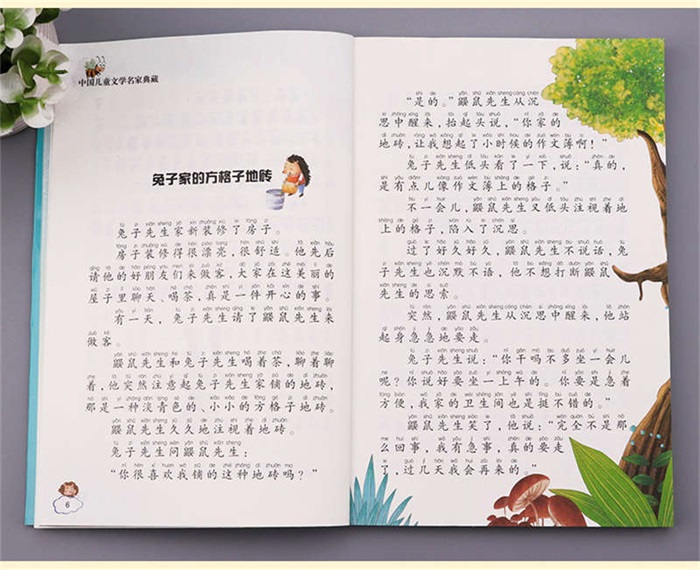 中国儿童文学名家典藏
兔子家的方格子地砖
兔子先生家新装修了房子。
房子装修得很漂亮，很舒适。他先后
请他的好朋友们来做客，大家在这美丽的
屋子里聊天、喝茶，真是一件开心的事。
有一天，兔子先生请了鼹鼠先生来
做客。
鼹鼠先生和兔子先生喝着茶，聊着聊
着，他突然注意起兔子先生家铺的地砖，
那是一种淡青色的、小小的方格子地砖。
鼹鼠先生久久地注视着地砖。
兔子先生问鼹鼠先生：
“你很喜欢我铺的这种地砖吗？”
6
“是的。”鼹鼠先生从沉
思中醒来，抬起头说，“你家的
地砖，让我想起了小时候的作文薄啊！”
兔子先生低头看了一下，说：“真的，
是有点儿像作文薄上的格子。”
不一会儿，鼹鼠先生又低头注视着地
上的格子，陷入了沉思。
过了好久好久，鼹鼠先生不说话，兔
子先生也沉默不语，他不想打断鼹鼠
先生的思索。
突然，鼹鼠先生从沉思中醒来，他站
起身急急地要走。
兔子先生说：“你干吗不多坐一会儿
呢？你说好要坐一上午的。你要是急着
方便，我家的卫生间也是挺不错的。”
鼹鼠先生笑了，他说：“完全不是那
么回事，我有急事，真的要走
了，过几天我会再来的。”